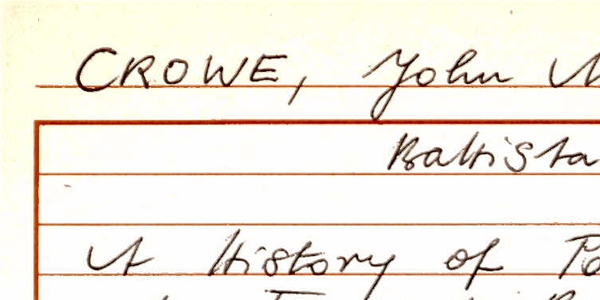 CROWE, John
Battista
A History of